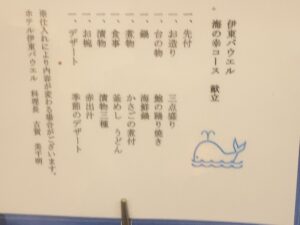 伊東パウエル
海の幸コース 献立
一、先付
一、お造り 三点盛り
一、台の物 鮑の踊り焼き
一、鍋 海鮮鍋
一、煮物 かさごの煮付
一、食事 釜めし うどん
一、漬物 漬物三種
一、お椀 赤出汁
一、デザート 季節のデザート
※仕入れにより内容が変わる場合がございます。
ホテル伊東パウエル 料理長 古賀